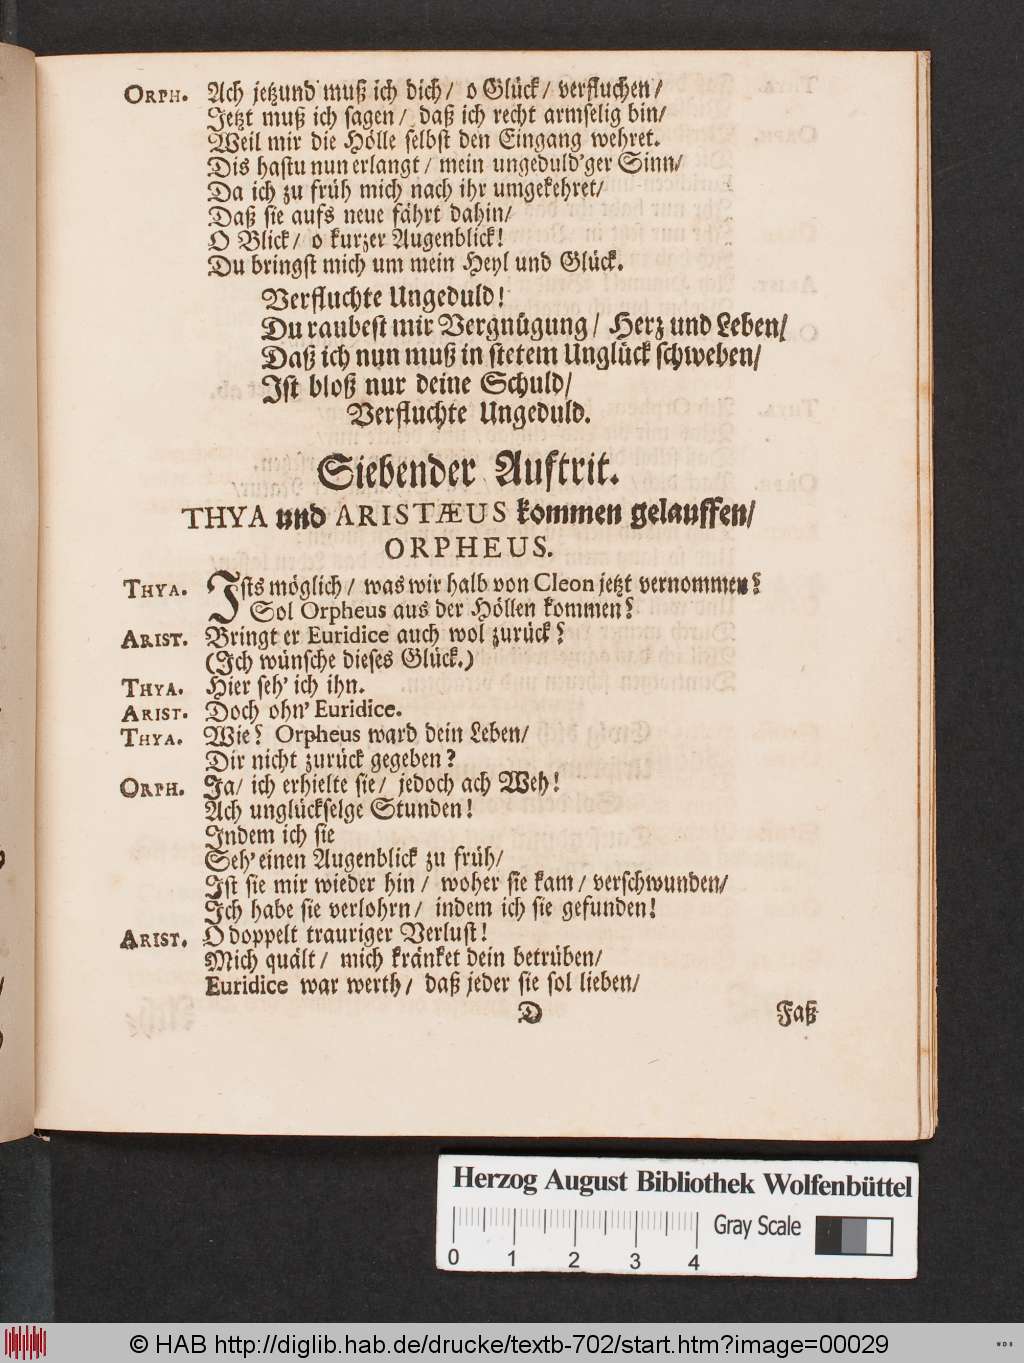 ORPH. Ach jetzund muß ich dich/ o Glück/ verfluchen/
Jetzt muß ich sagen/ daß ich recht armselig bin/
Weil mir die Hölle selbst den Eingang wehret.
Dis hastu nun erlangt/ mein ungeduld'ger Sinn/
Da ich zu früh mich nach ihr umgekehret/
Daß sie aufs neue fährt dahin/
O Blick/ o kurzer Augenblick!
Du bringst mich um mein Heyl und Glück.
Verfluchte Ungeduld!
Du raubest mir Vergnügung/ Herz und Leben/
Daß ich nun muß in stetem Unglück schweben/
Ist bloß nur deine Schuld/
Verfluchte Ungeduld.
Siebender Auftrit.
THYA und ARISTÆUS kommen gelauffen/
ORPHEUS.
THYA. Ists möglich/ was wir halb von Cleon jetzt vernommen?
Sol Orpheus aus der Höllen kommen?
ARIST. Bringt er Euridice auch wol zurück?
(Ich wünsche dieses Glück.)
THYA. Hier seh' ich ihn.
ARIST. Doch ohn' Euridice.
THYA. Wie? Orpheus ward dein Leben/
Dir nicht zurück gegeben?
ORPH. Ja/ ich erhielte sie/ jedoch ach Weh!
Ach unglückselge Stunden!
Indem ich sie
Seh' einen Augenblick zu früh/
Ist sie mir wieder hin/ woher sie kam/ verschwunden/
Ich habe sie verlohrn/ indem ich sie gefunden!
ARIST. O doppelt trauriger Verlust!
Mich quält/ mich kränket dein betrüben/
Euridice war werth/ daß jeder sie sol lieben/
D Faß
Herzog August Bibliothek Wolfenbüttel
Gray Scale
0 1 2 3 4
© HAB http://diglib.hab.de/drucke/textb-702/start.htm?image=00029